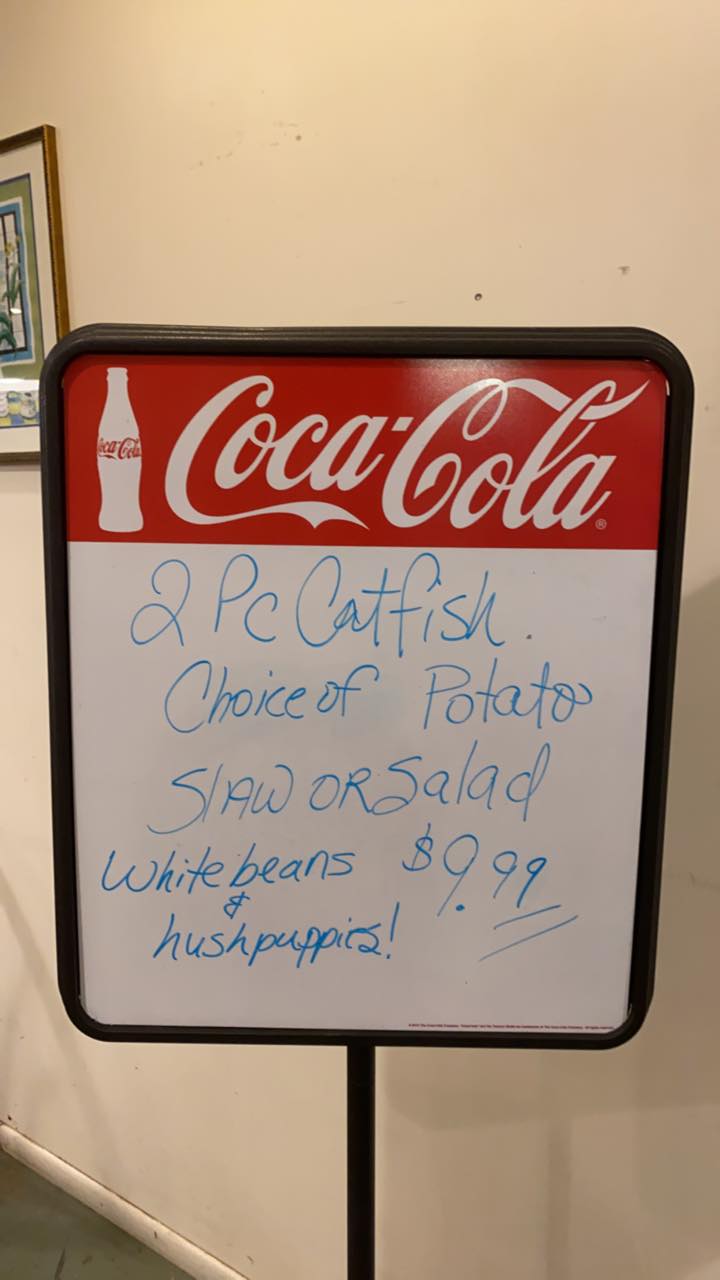 Coca-Cola
Coca-Cola®
2 Pc Catfish.
Choice of Potato
SLAW OR Salad
White beans $9.99
&
hushpuppies!